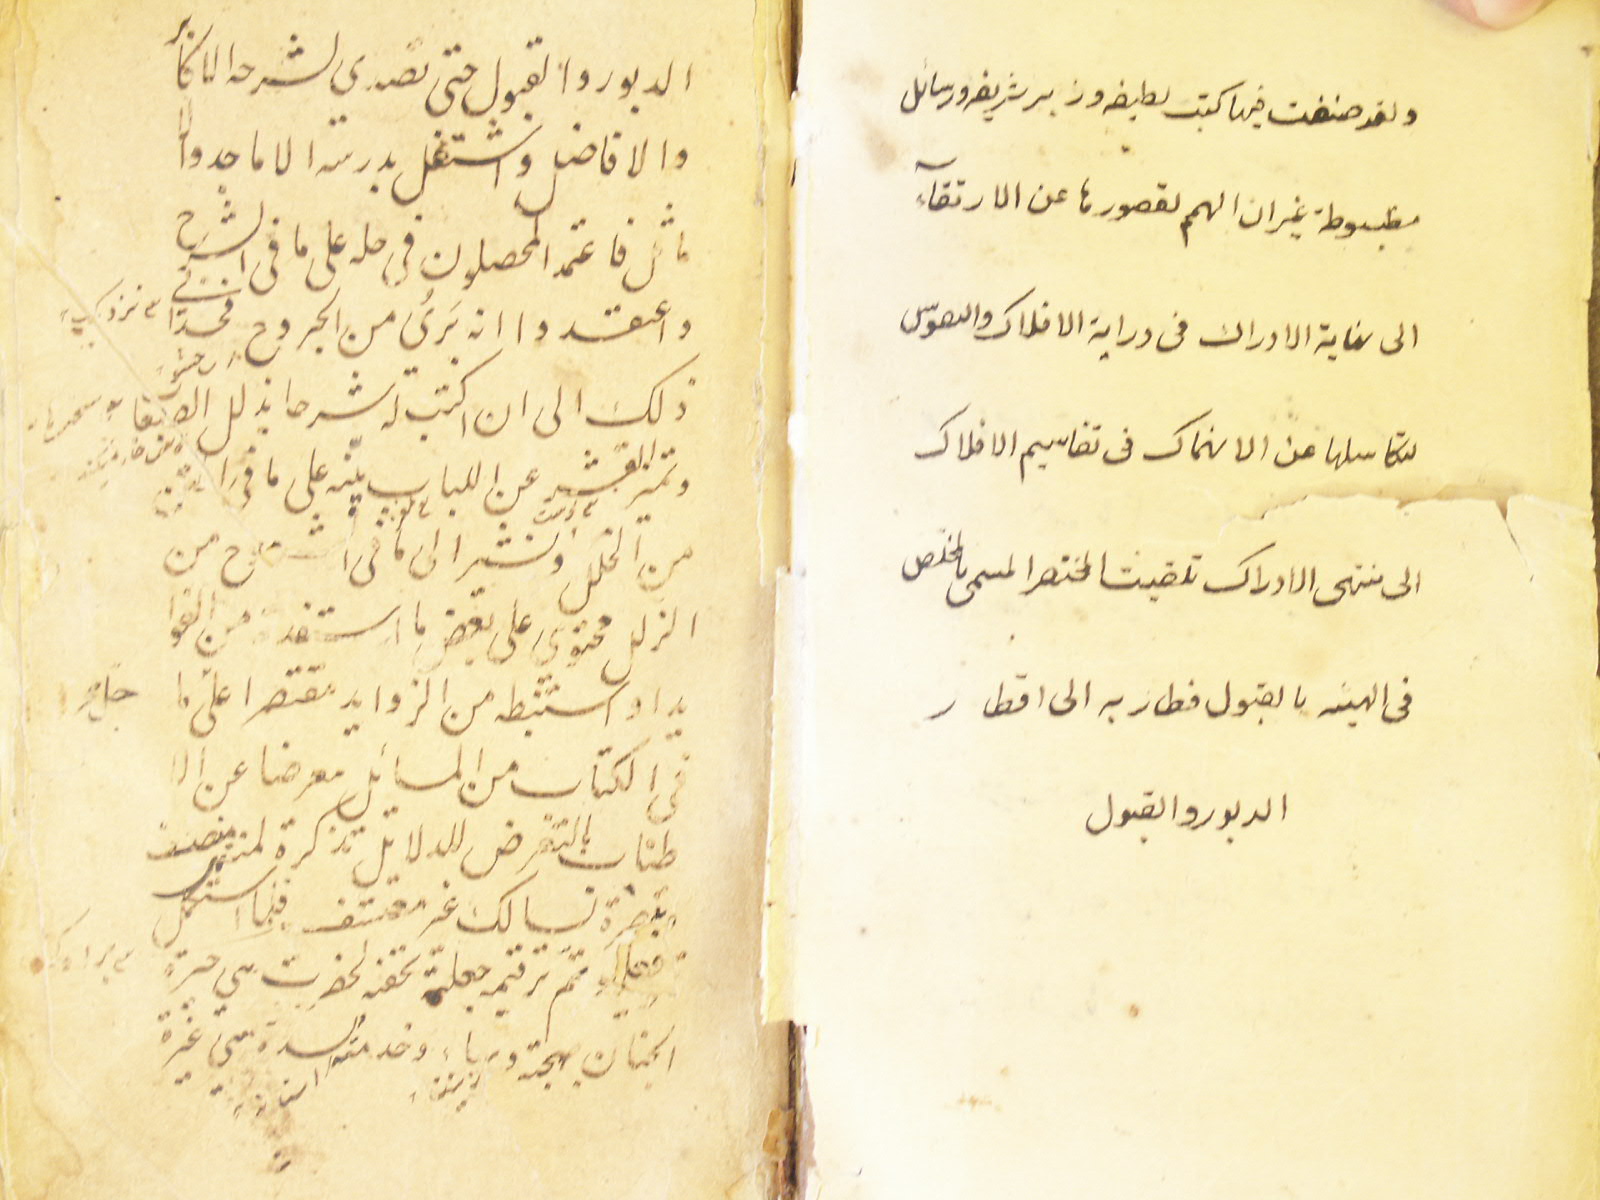 ولقد صنفت فيها كتب لطيفه وزبر شريفه ورسائل
مضبوطة غير ان الهمم لقصورها عن الارتقآء
الى نهاية الادراك فى دراية الافلاك والتهوس
بتكاسلها عن الانهماك فى تفاسيم الافلاك
الى منتهى الادراك تلقيت المختصر المسمى بالملخص
فى الهيئه بالقبول فطار به الى اقطار
الدبور والقبول
الدبور والقبول حتى تصدى لشرحه الاكابر
والافاضل واشتغل بدرسته الاماجد والا
ماثل فاعتمد المحصلون فى حله على ما فى الشرح
واعتقدوا انه برئ من الجروح فحدانى
ذلك الى ان اكتب له شرحا يذلل الصعاب
وتميز القشر عن اللباب ينبه على ما فى
من الخلل ونشير الى ما فى الشروح من
الزلل محتوى على بعض ما استفدته من الفوا
يد او استنبطه من الزوايد مقتصرا على ما
فى الكتاب من المسائل معرضا عن الا
طناب بالتعرض للدلايل تذكرة لمنتهى منصف
وتبصرة لسالك غير معتسف فلما استكمل
تم ترقيمه جعلته تحفه لحضرت هى حسرة
الجنان بهجة و وخدمته لسدة هى غيرة